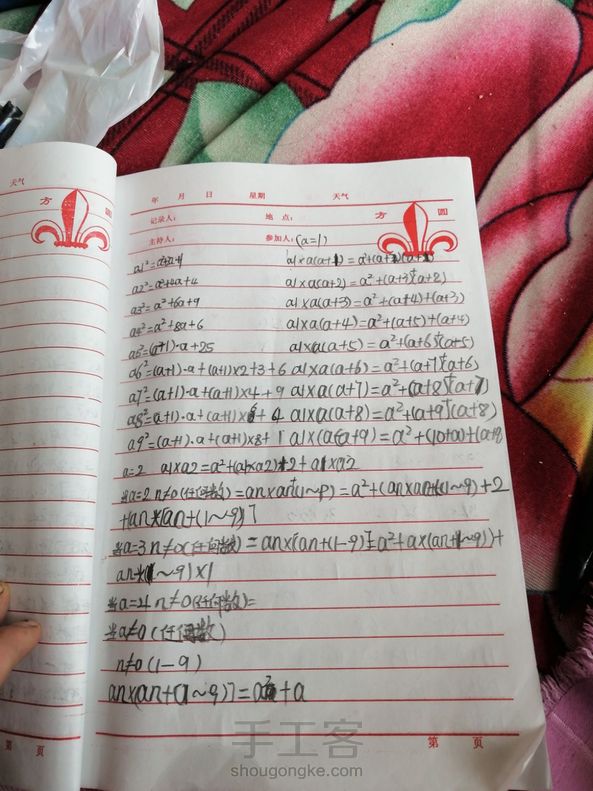 天气
方 圆
年 月 日 星期 天气
记录人: 地 点: 方 圆
主持人: 参加人: (a=1)
a2²=a²+4a+4 a1×a(a+2)=a²+(a+3)+(a+8)
a3²=a²+6a+9 a1×a(a+3)=a²+(a+4)+(a+3)
a4²=a²+8a+6 a1×a(a+4)=a²+(a+5)+(a+4)
a5²=(a+1)·a+25 a1×a(a+5)=a²+(a+6)+(a+5)
a6²=(a+1)·a+(a+1)×2+3+6 a1×a(a+6)=a²+(a+7)+(a+6)
a7²=(a+1)·a+(a+1)×4+9 a1×a(a+7)=a²+(a+8)+(a+7)
a8²=(a+1)·a+(a+1)× +4 a1×a(a+8)=a²+(a+9)+(a+8)
a9²=(a+1)·a+(a+1)×8+1 a1×a(a+9)=a²+(10+a)+(a+9)
a=2 a1×a2=a²+
当a=2 n≠0(任何数)=an×an+(1~9)=a²+(an×an+(1~9)+2
+an×[an+(1~9)]
当a=3 n≠0(任何数)=an×[an+(1-9)]=a²+a×(an+1~9)+
(1~9)×1
当a=4 n≠0(任何数)=
当a≠0(任何数)
n≠0(1-9)
an×[an+(1~9)]= +a
第 页
第 页
手工客
shougongke.com